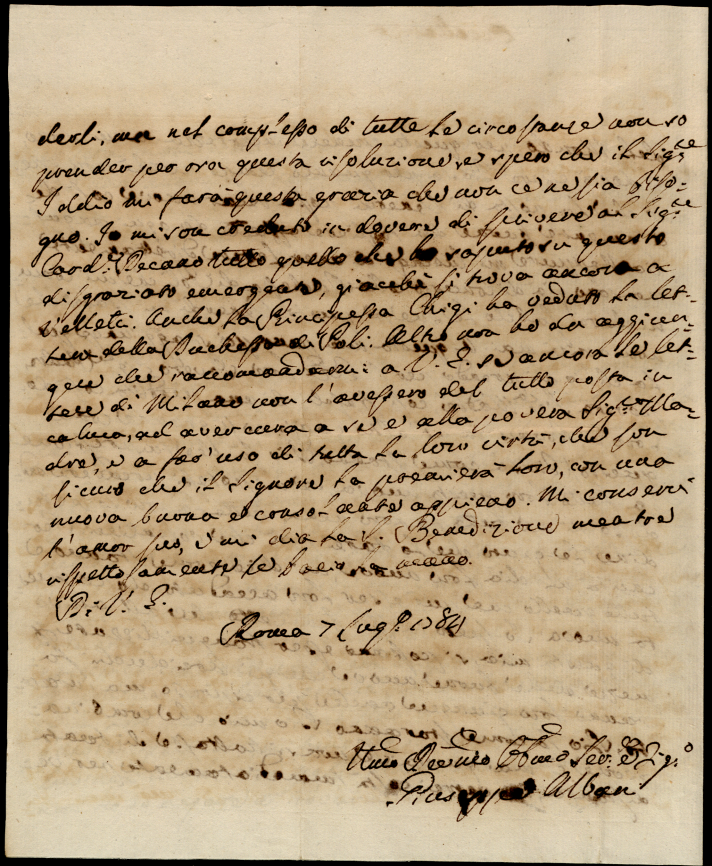 derli, ma nel complesso di tutte le circostanze non so
prender per ora questa risoluzione, e spero che il Sig.re
Iddio mi farà questa grazia che non ce ne sia biso-
gno. Io mi son creduto in dovere di scrivere al Sig.re
Card.e Decano tutto quello che ho saputo su questo
disgraziato emergente, giacchè si trova ancora a
Velletri. Anche la Principessa Chigi ha veduto la let-
tera della Duchessa di Poli. Altro non ho da aggiun-
gere che raccomandarmi a V. E. se ancora le let-
tere di Milano non l'avessero del tutto posta in
calma, ad aver cura a se e alla povera Sig.ra Ma-
dre, e a far uso di tutta la loro virtù, che son
sicuro che il Signore la premierà loro, con una
nuova buona e consolante appieno. Mi conservi
l'amor suo, e mi dia la S. Benedizione mentre
rispettosamente le bacio la mano.
Di V. E.
Roma 7 Lugl. 1784
Umo Devmo Obmo Ser. e
Giuseppe Albani